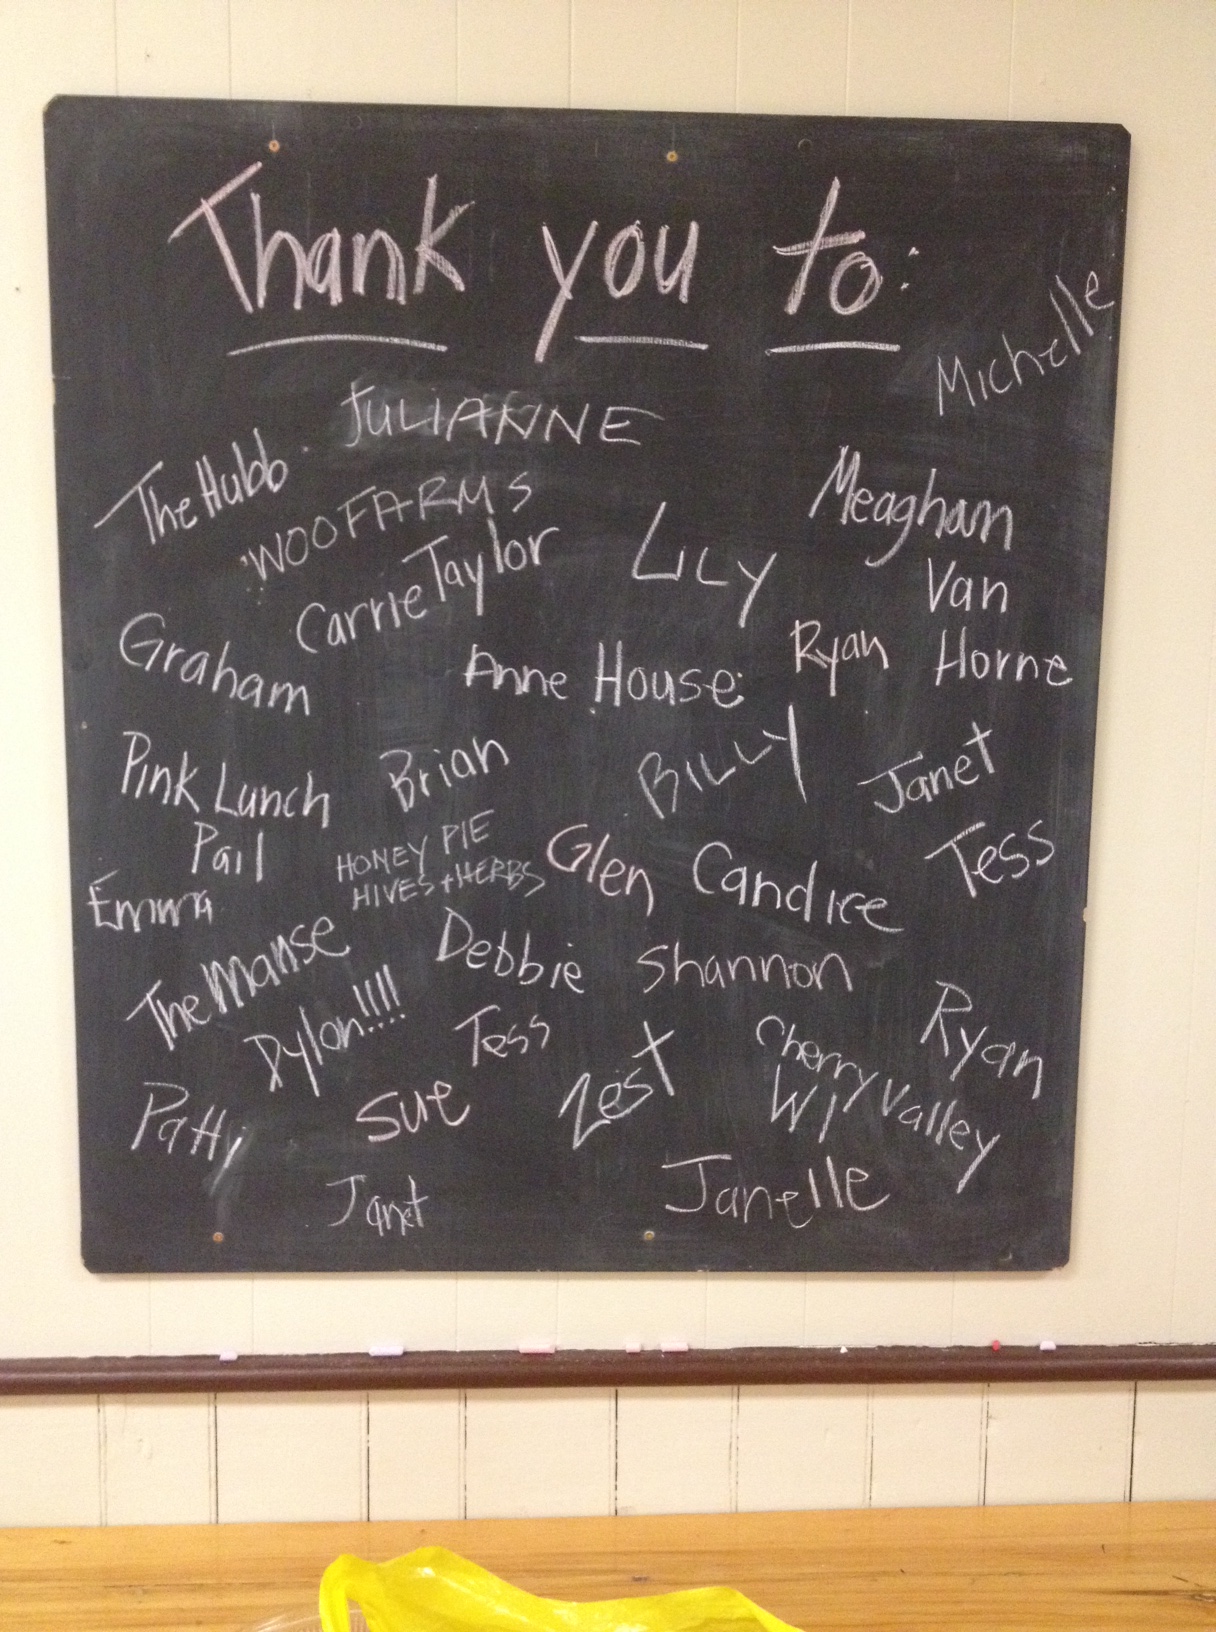 Thank you to:
Michelle
JULIANNE
The Hubb
WOOFARMS
Carrie Taylor
LILY
Meagham
Van
Horne
Graham
Anne House
Ryan
Pink Lunch
Pail
Brian
BILLY
Janet
HONEY PIE
HIVES + HERBS
Glen
Candice
Tess
Emma
The Manse
Debbie
Shannon
Dylon!!!!
Tess
Zest
Cherry Valley
WI
Ryan
Patty
Sue
Janet
Janelle